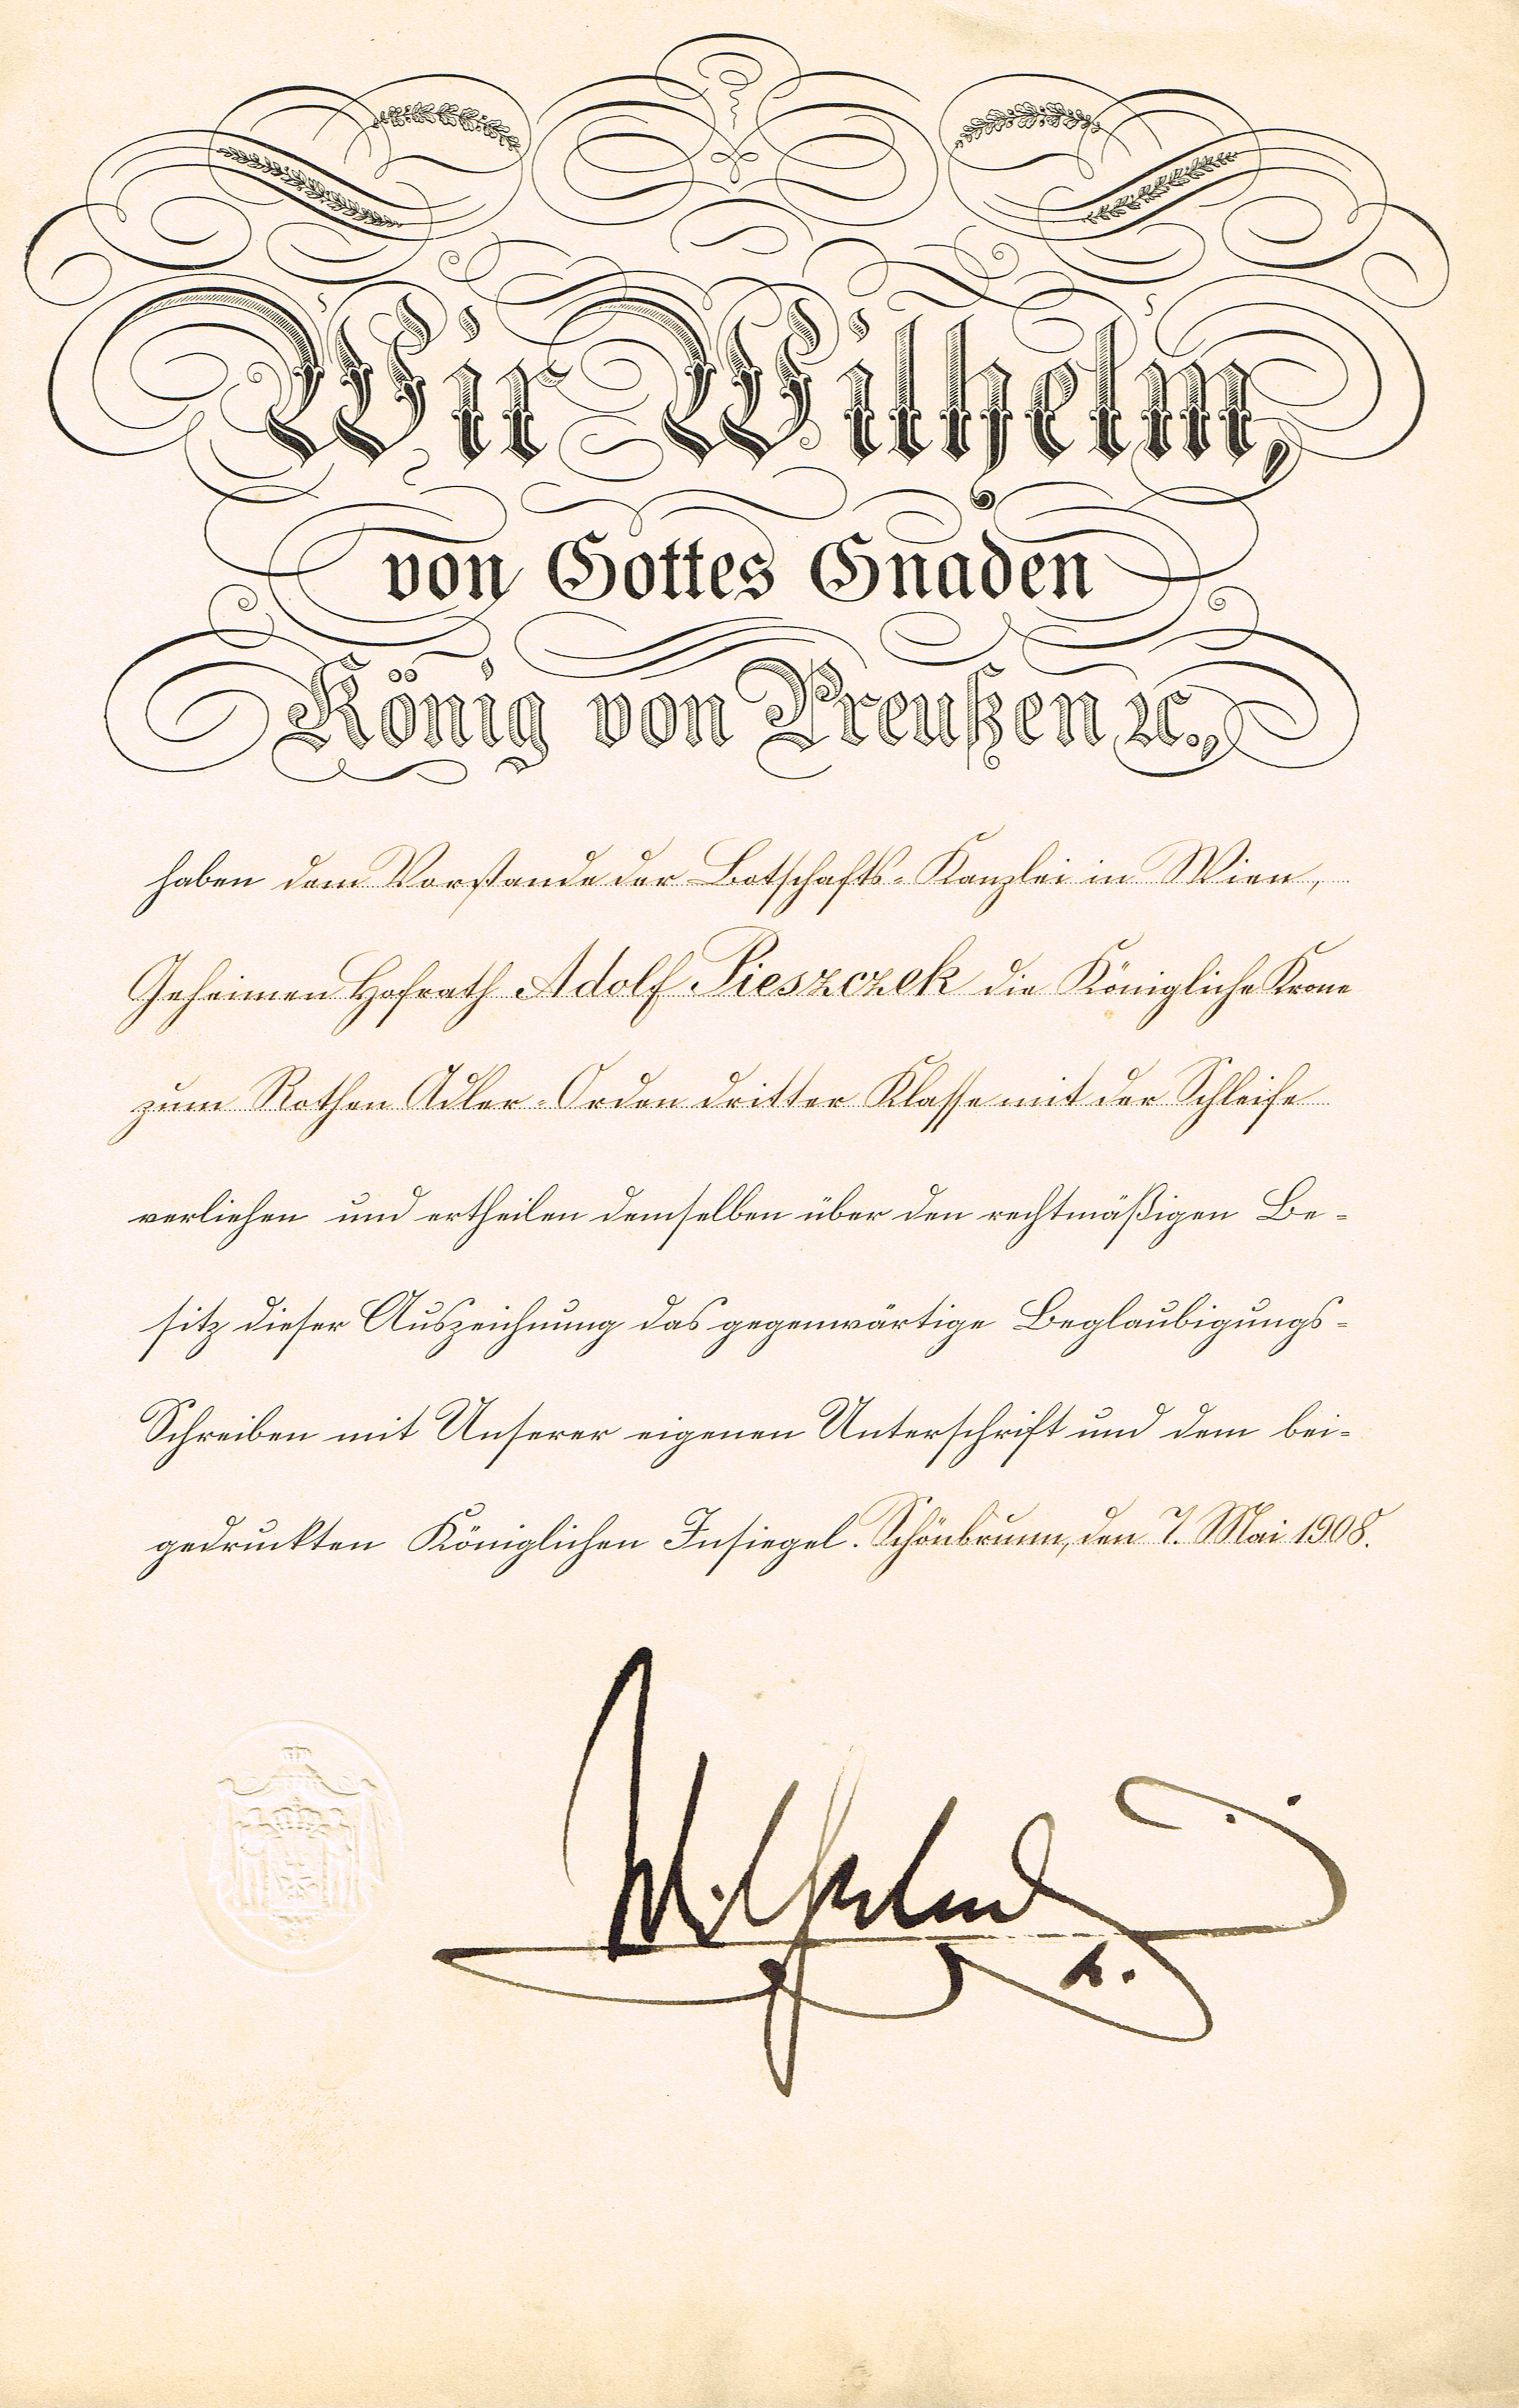 Wir Wilhelm,
von Gottes Gnaden
König von Preußen ꝛc.,
haben dem Vorstande der Botschafts-Kanzlei in Wien,
Geheimen Hofrath Adolf Pieszczek die Königliche Krone
zum Rothen Adler-Orden dritter Klasse mit der Schleife
verliehen und ertheilen demselben über den rechtmäßigen Be-
sitz dieser Auszeichnung das gegenwärtige Beglaubigungs-
Schreiben mit Unserer eigenen Unterschrift und dem bei-
gedruckten Königlichen Insiegel. Schönbrunn, den 7. Mai 1908.
Wilhelm
R.